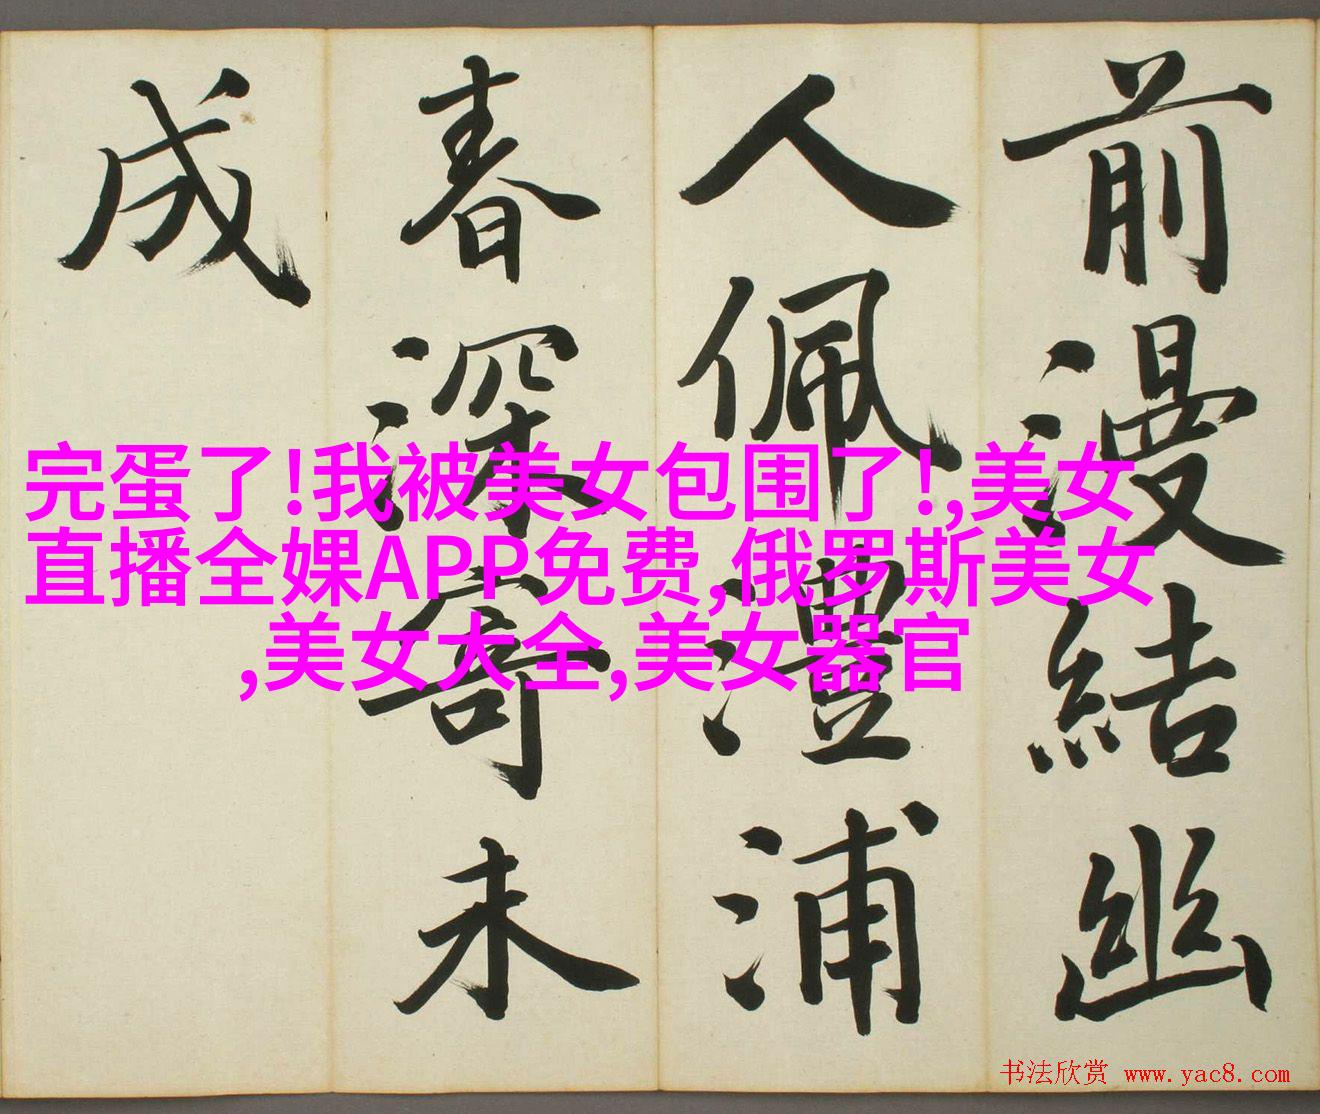 前漫結幽
人佩澧浦
春深寄未
成
完蛋了!我被美女包围了!,美女
直播全婐APP免费,俄罗斯美女
,美女大全,美女器官
书法欣赏 www.yac8.com